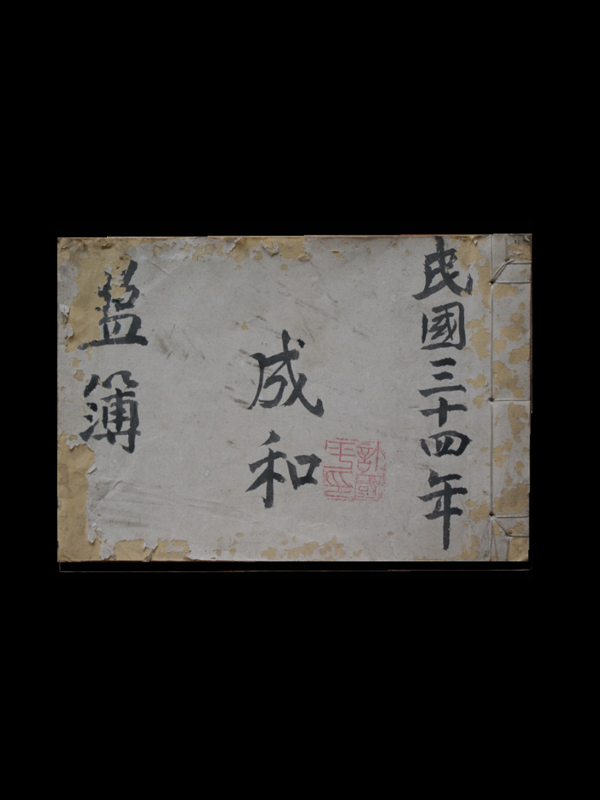 民國三十四年
成和
盈簿